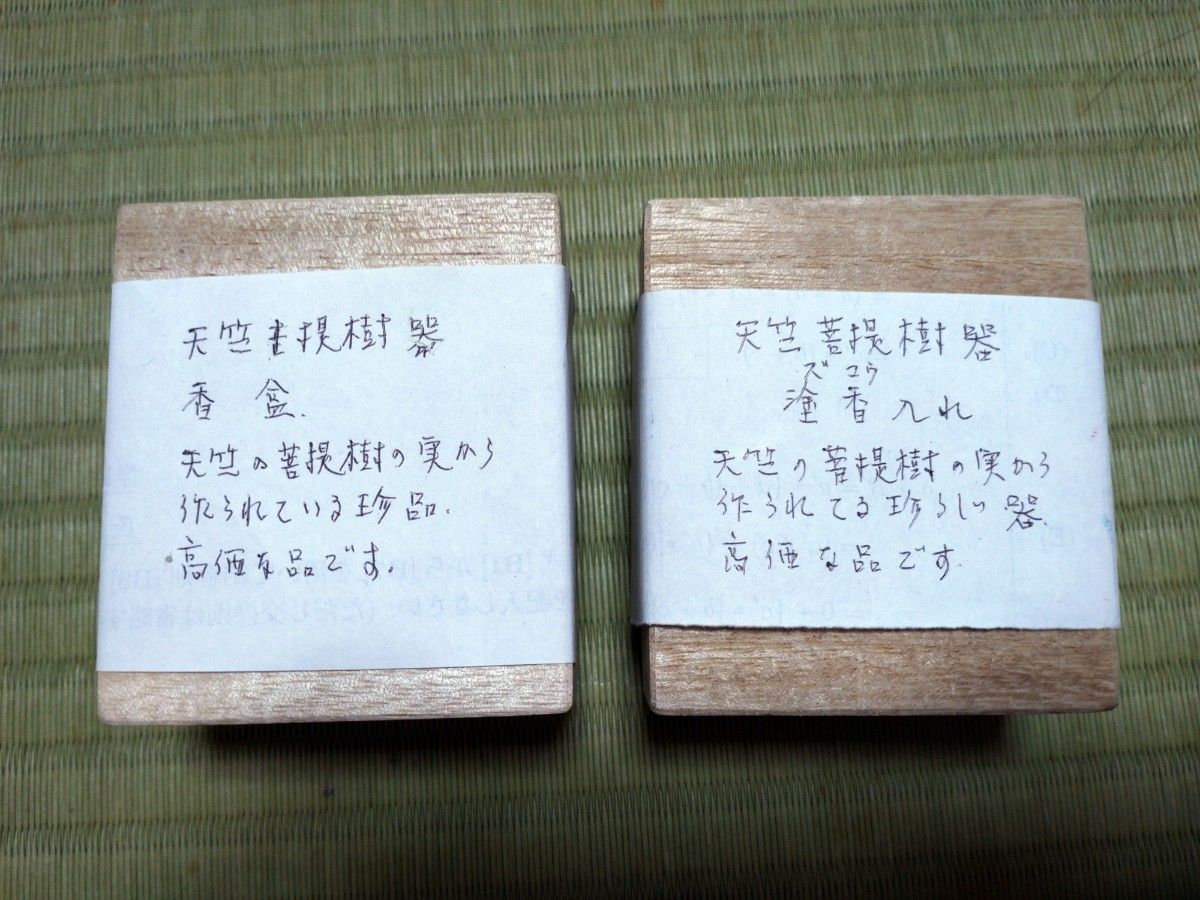 天竺菩提樹器
香盒.
天竺の菩提樹の実から
作られている珍品.
高価な品です.
天竺菩提樹器
ズコウ
塗香入れ
天竺の菩提樹の実から
作られてる珍らしい器.
高価な品です.